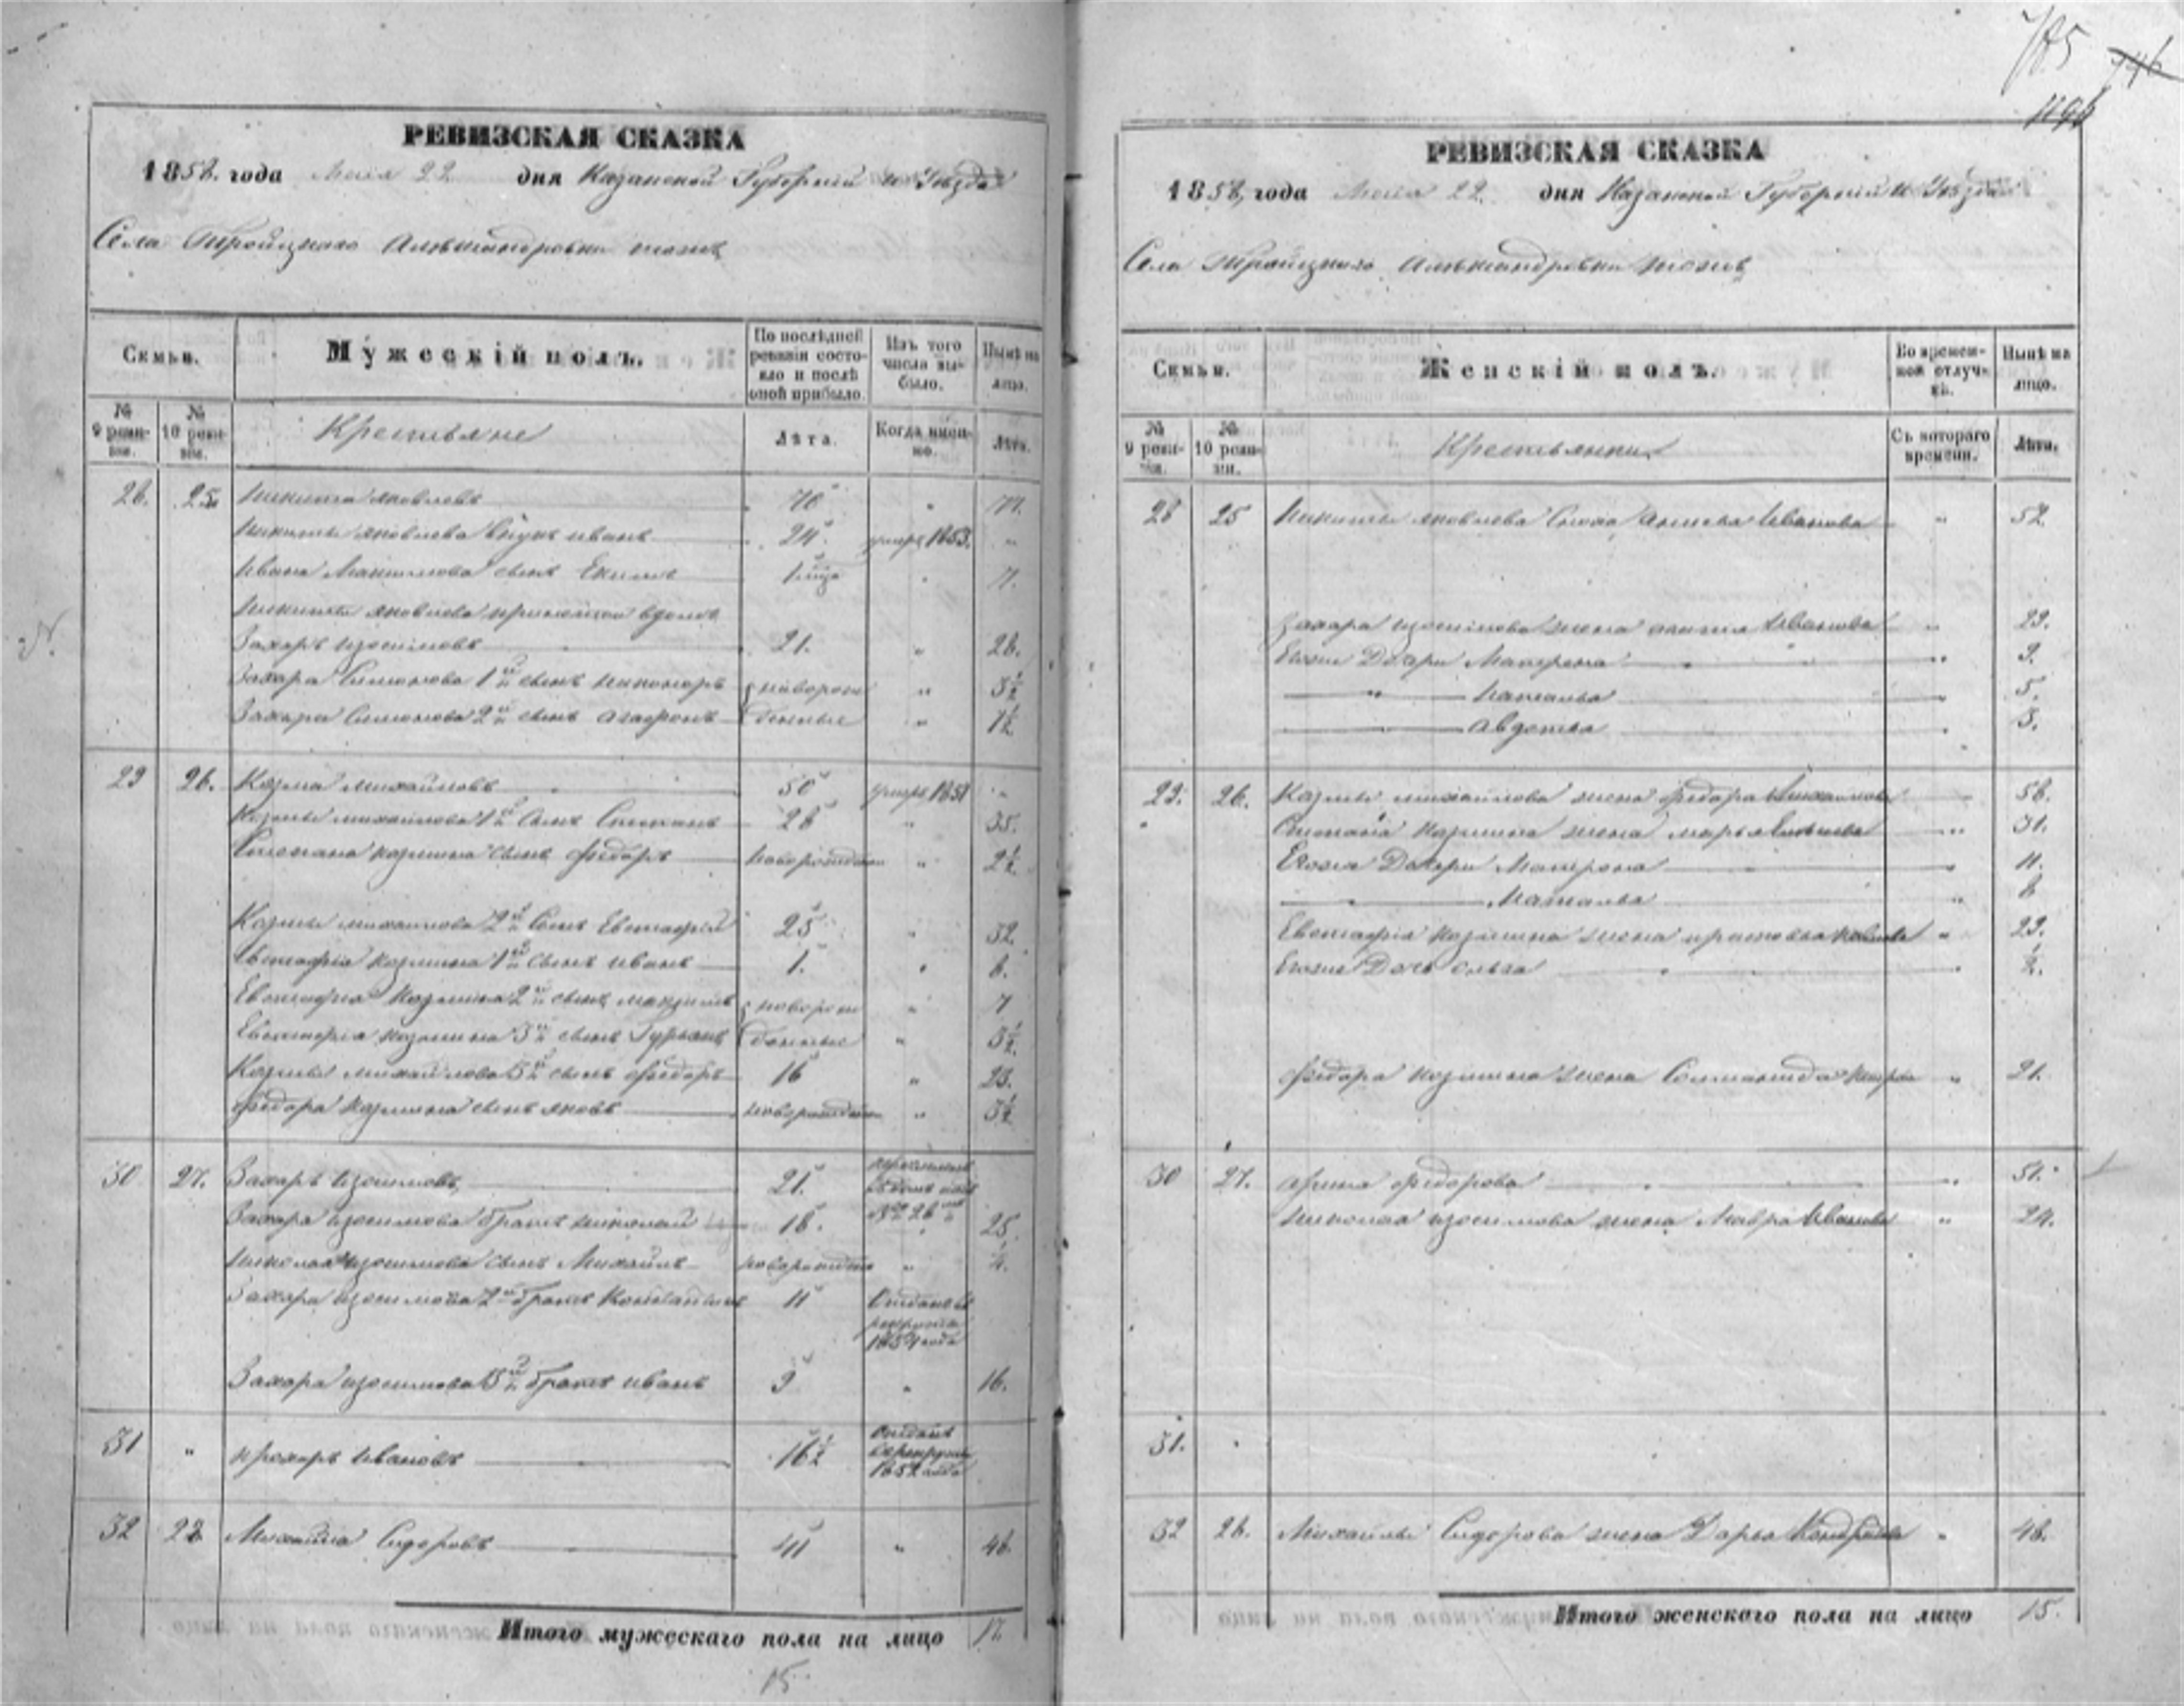 785 746
1196
РЕВИЗСКАЯ СКАЗКА
1858. года Мая 22 дня Казанской Губерніи и Уѣзда
Села Тройцкаго Александровки тожъ
Семьи.
Мужескій полъ.
По послѣдней ревизіи состояло и послѣ оной прибыло.
Изъ того числа выбыло.
Нынѣ на лицо.
№ 9 ревизіи.
№ 10 ревизіи.
Крестьяне
Лѣта.
Когда именно.
Лѣта.
28. 25. Никита Яковлевъ 70 " 77.
Никиты Яковлева внукъ Иванъ 24. умеръ 1853. "
Ивана Максимова сынъ Екимъ 1 мѣца " 7.
Никиты Яковлева
Захаръ Изосимовъ 21. " 28.
Захара 1й сынъ Никаноръ новорож " 3½
Захара 2й сынъ Агафонъ денные " 1½
29 26. Козма Михайловъ 50 умеръ "
Козмы Михайлова 1й сынъ Степанъ 28 " 35.
Степана Козмина сынъ Федоръ новорожден " 2½
Козмы Михайлова 2й сынъ Евстафій 25 " 32.
Евстафія Козмина 1й сынъ Иванъ 1. " 8.
Евстафія Козмина 2й сынъ Максимъ новорож " 7
Евстафія Козмина 3й сынъ Гурьянъ денные " 3½
Козмы Михайлова 3й сынъ Федоръ 16 " 23.
Федора Козмина сынъ Яковъ новорожден " 3½
30 27. Захаръ Изосимовъ 21.
Захара Изосимова братъ Николай 18. " 25.
Николая Изосимова сынъ Михайлъ новорожден "
Захара Изосимова 2й братъ Константинъ 11 Отданъ въ рекруты 1854 года
Захара Изосимова 3й братъ Иванъ 9 " 16.
31 " Прохоръ Ивановъ 16½ Отданъ въ рекруты 1852 года
32 28 Михайла Сидоровъ 41 " 48.
Итого мужескаго пола на лицо 17.
15.
РЕВИЗСКАЯ СКАЗКА
1858, года Мая 22. дня Казанской Губерніи и Уѣзда
Села Тройцкаго Александровки тожъ
Семьи.
Женскій полъ.
Во временной отлучкѣ.
Нынѣ на лицо.
№ 9 ревизіи.
№ 10 ревизіи.
Крестьянки
Съ котораго времени.
Лѣта.
28 25 Никиты Яковлева сноха Иванова " 52.
Захара Изосимова жена Иванова " 29.
Егоже Дочери Матрена " 9.
" Наталья " 5.
Авдотья " 3.
29. 26. Козмы Михайлова жена Федора 58.
Степана Козмина жена Марья " 31.
Егоже Дочери Матрена " 11.
Наталья " 8
Евстафія Козмина жена Прасковья " 29.
Егоже Дочь Ольга " ½.
Федора Козмина жена Соломонида " 21.
30 27. Арина Федорова " 51.
Николая Изосимова жена Мавра Иванова " 24.
31.
32 28. Михайлы Сидорова жена Дарья " 48.
Итого женскаго пола на лицо 15.